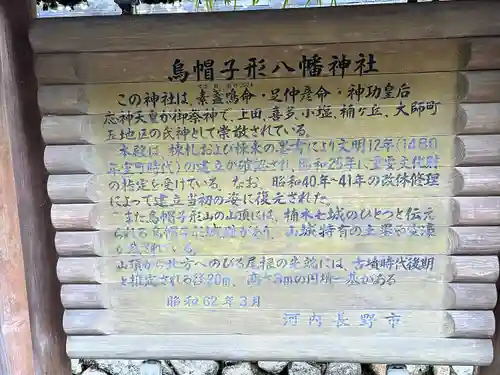 烏帽子形八幡神社
この神社は、素盞嗚命・足仲彦命・神功皇后
応神天皇が御祭神で、上田、喜多、小塩、楠ヶ丘、大師町
五地区の氏神として崇敬されている。
本殿は、棟札および棟束の墨書により文明12年(1480
年室町時代)の建立が確認され、昭和25年に重要文化財
の指定を受けている。なお、昭和40年〜41年の改体修理
によって建立当初の姿に復元された。
また烏帽子形山の山頂には、楠木七城のひとつと伝え
られる烏帽子形城跡があり、山城特有の土塁や空濠
が残されている。
山頂から北方へのびる尾根の先端には、古墳時代後期
と推定される径20m、高さ3mの円墳一基がある
昭和62年3月
河内長野市